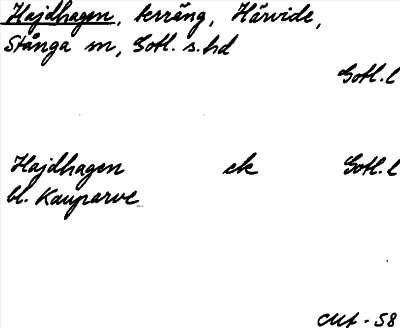 Hajdhagen, terräng, Härvide,
Stånga sn, Gotl. s. hd
Gotl. l
Hajdhagen ek Gotl. l
bl. Kauparve
CMt - 58